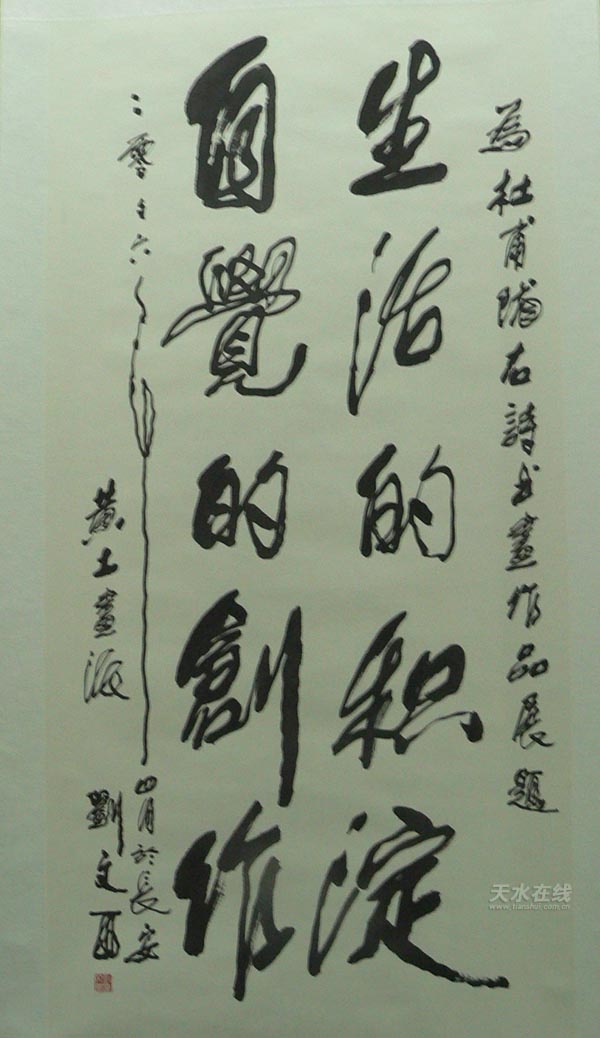 为杜甫陇右詩书畫作品展题
生活的积淀
自覺的創作
二零零六年
四月於長安
黄土畫派
劉文西
天水在线
www.tianshui.com.cn